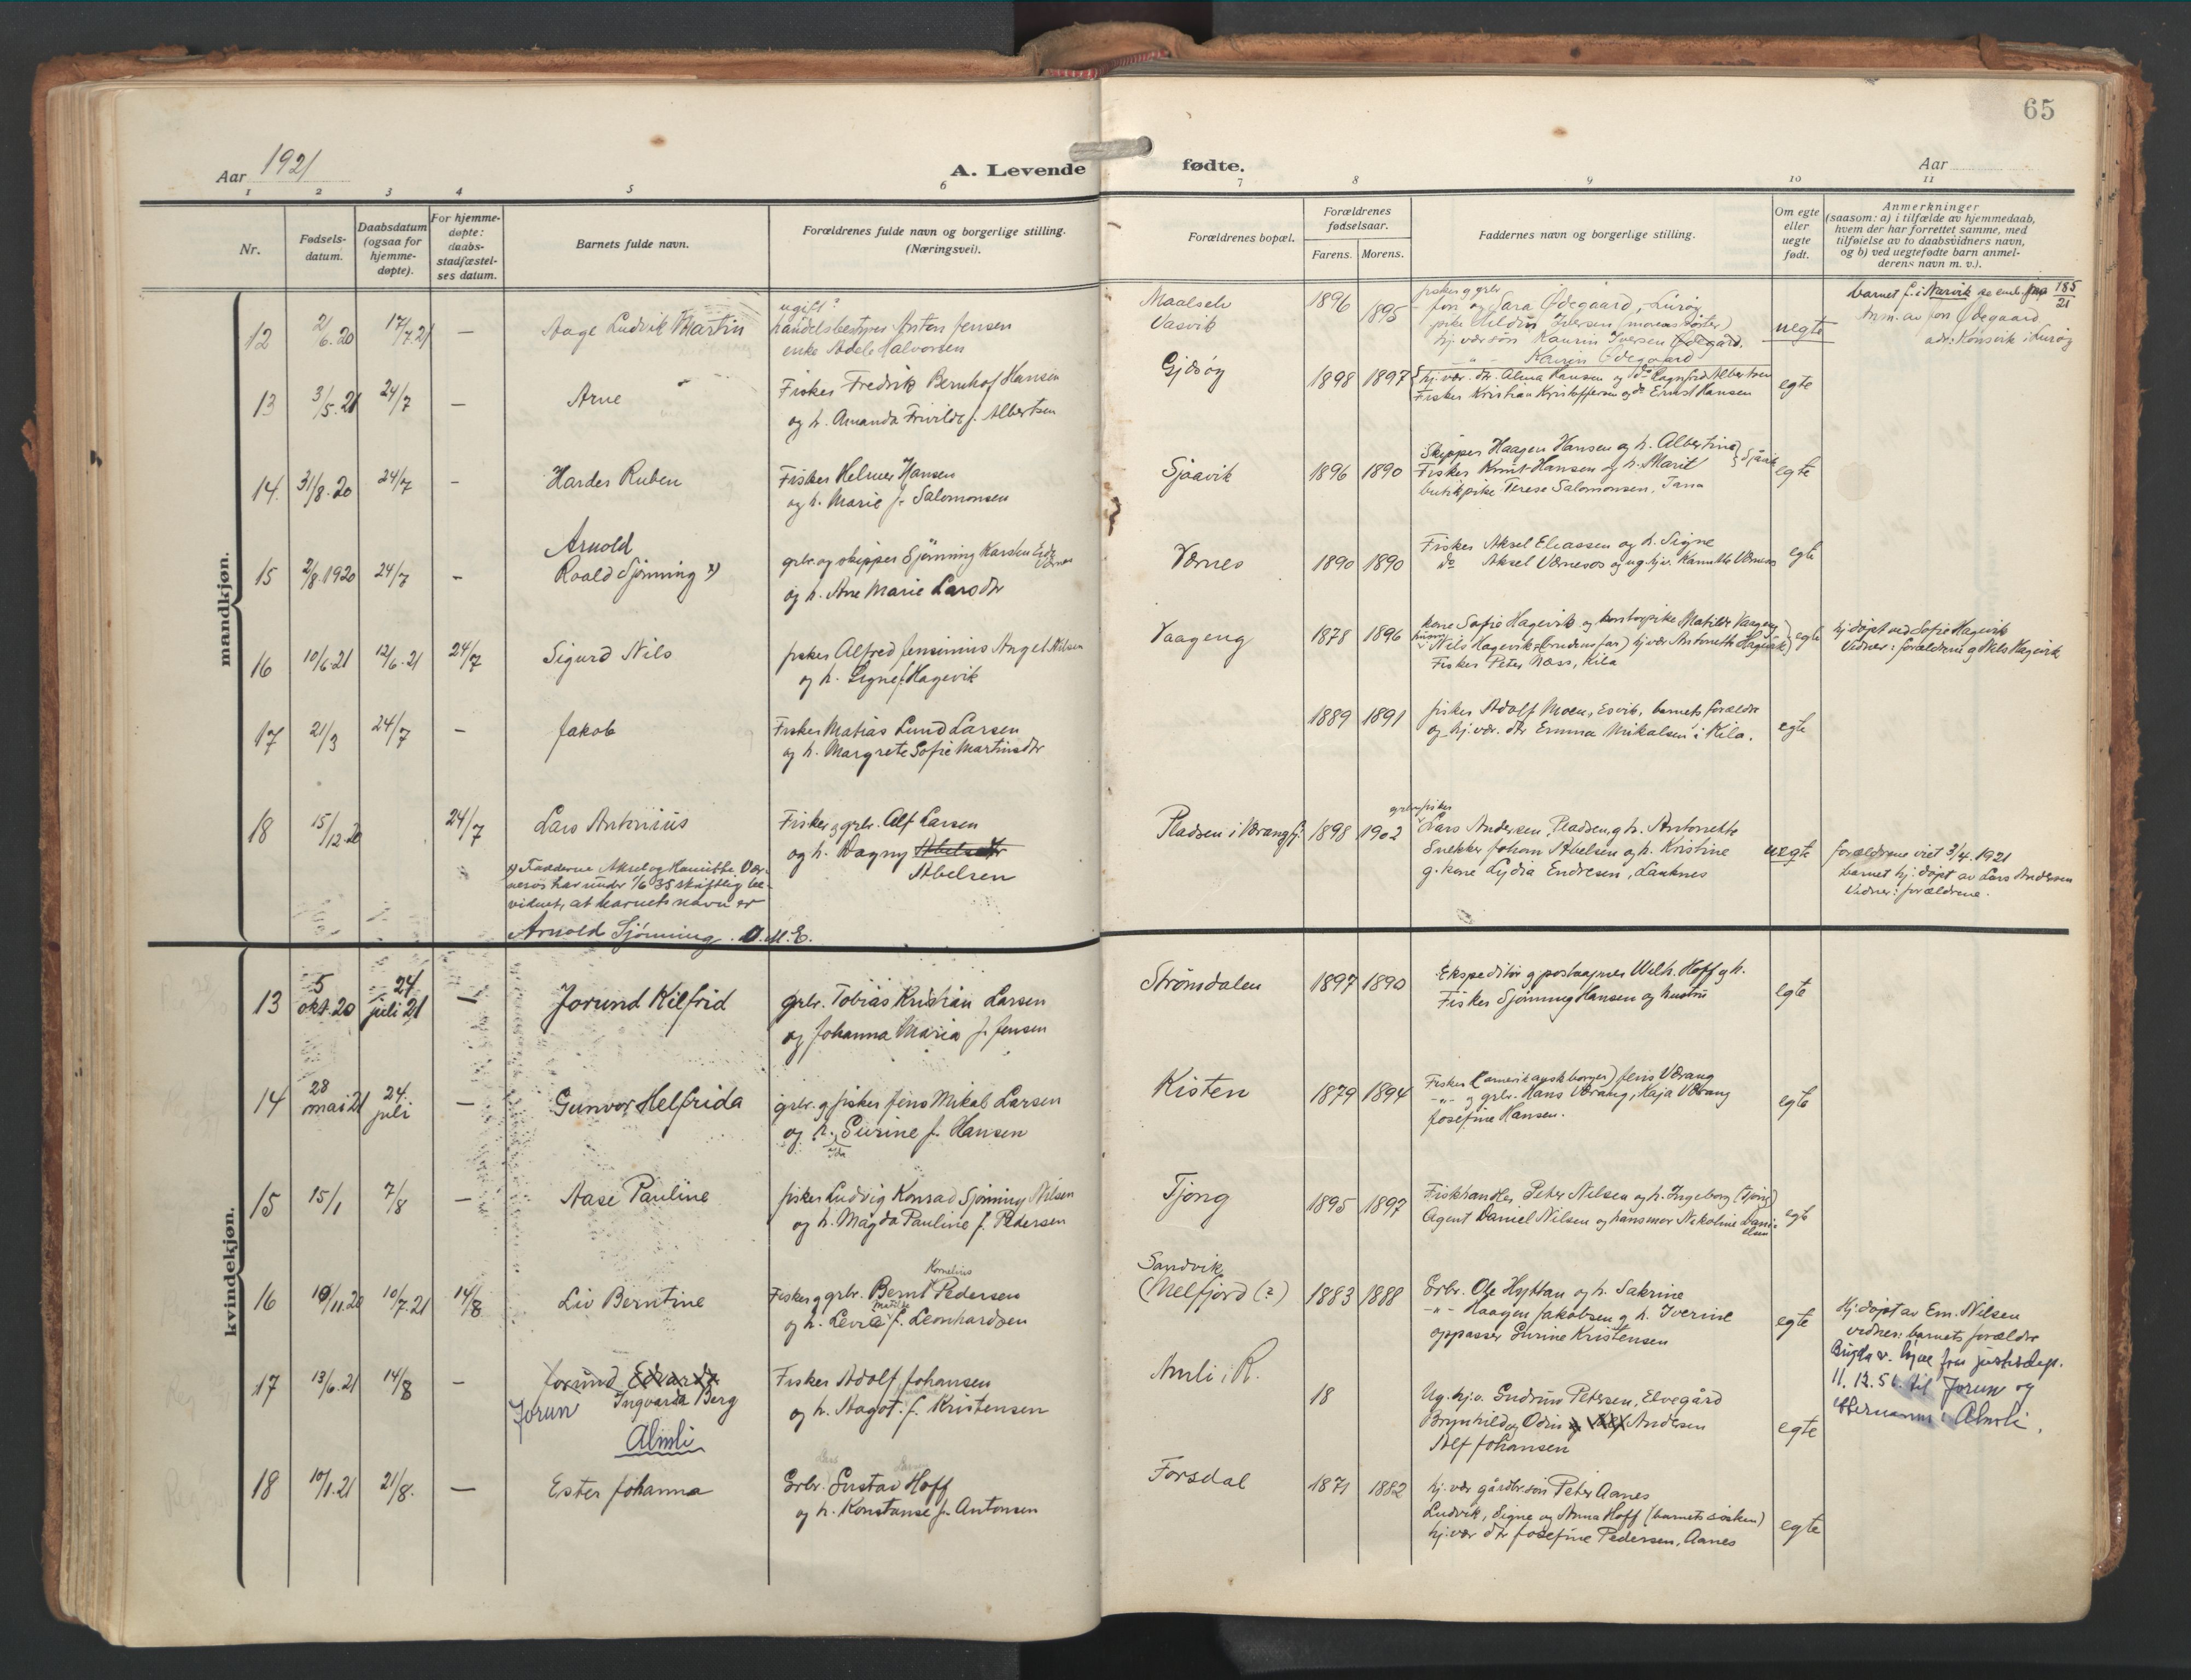 65
Aar 1921
A. Levende fødte.
Aar
1 2 3 4 5 6 7 8 9 10 11
Nr.
Fødsels-
datum.
Daabsdatum
(ogsaa for
hjemme-
døpte).
For hjemme-
døpte:
daabs-
stadfæstel-
ses datum.
Barnets fulde navn.
Forældrenes fulde navn og borgerlige stilling.
(Næringsvei).
Forældrenes bopæl.
Forældrenes
fødselsaar.
Farens. Morens.
Faddernes navn og borgerlige stilling.
Om egte
eller
uegte
født.
Anmerkninger
(saasom: a) i tilfælde av hjemmedaab,
hvem der har forrettet samme, med
tilføielse av to daabsvidners navn,
og b) ved uegtefødte barn anmel-
derens navn m. v.).
mandkjøn.
12 2/6.20 17/7.21 — Aage Ludvik Martin
ugift?
handelsbestyrer Anton Jensen
enke Adele Halvorsen
Maalselv
Vasvik
1896 1895
fisker g grbr
Jon og Sara Ødegaard, Lurøy
pike Hildur Iversen (morens søster)
hj. vær. søn Kaurin Iversen Ødegård.
—"— Kaurin Ødegaard
uegte
barnet f. i Narvik 185/21
Anm. av Jon Ødegaard
adr: Konsvik i Lurøy
13 3/5.21 24/7 — Arne
Fisker Fredrik Bernhof Hansen
og h. Amanda Frivilde f. Albertsen
Gjdsøy
1898 1897
hj. vær. dtr. Alma Hansen og do Ragnfrid Albertsen
Fisker Kristian Kristoffersen og do Ernst Hansen
egte
14. 31/8.20 24/7 — Hardes Ruben
Fisker Helmer Hansen
og h. Marie f. Salomonsen
Sjaavik
1896 1890
Skipper Haagen Hansen og h. Albertine
Fisker Knut Hansen og h. Marit
butikpike Terese Salomonsen, Tana
egte
15 2/8 1920 24/7 — Arnold
Roald Sjønning x)
grbr. og skipper Sjønning Karsten
Værnes
og h. Ane Marie Larsdtr
Værnes
1890 1890
Fisker Aksel Eliassen og h. Signe
do Aksel Værnesos og ug. hj.v. Værnesos
egte
16 10/6.21 12/6.21 24/7 Sigurd Nils
fisker Alfred Jensinius Angel Nilsen
og h. Signe f. Hagevik
Vaageng
1878 1896
kone Sofie Hagevik og kontorpike Matilde Vaageng
Nils Hagevik (brudens far) hj. vær Antonette Hagevik
Fisker Peter Næss, Kila
egte
hj. døpt ved Sofie Hagevik
Vidner: forældrene g Nils Hagevik
17 21/3 24/7 — Jakob
Fisker Matias Lund Larsen
og h. Margrete Sofie Martinsdtr
1889 1891
fisker Adolf Moen, Esvik, barnets forældre
og hj. vær. dtr Emma Mikalsen i Kila.
egte
18 15/12.20 24/7 Lars Antonius
Fisker g grbr. Alf Larsen
og h. Dagny Abelsdtr
Abelsen
Pladsen i Værangfj.
1898 1902
grbr g fisker
Lars Andersen, Pladsen, g h. Antonette
Snekker Johan Abelsen og h. Kristine
g. kone Lydia Endresen, Lauknes
uegte
forældrene viet 3/4.1921
barnet hj. døpt av Lars Andersen
Vidner: forældrene.
x) Fadderne Aksel og Hanitte Vær-
nesos har under 1/6 35 skriftlig be-
vidnet, at barnets navn er
Arnold Sjønning. O.M.E.
kvindekjøn.
13 5 okt. 20 24 juli 21 — Jorund Kilfrid
grbr. Tobias Kristian Larsen
og Johanna Maria f. Jensen
Strømdalen
1897 1890
Ekspeditør g postaapner Wilh. Hoff g h.
Fisker Sjønning Hansen og hustru
egte
14 28 mai 21 24. juli — Gunvor Helfrida
grbr. g fisker Jens Mikal Larsen
og h. Surine f. Hansen
Kisten
1879 1894
Fisker (amerikansk borger) Jens Værang
—"— g grbr. Hans Værang, Kaja Værang
Josefine Hansen.
egte
15 15/1 7/8 — Aase Pauline
fisker Ludvig Konrad Sjønning Nilsen
og h. Magda Pauline f. Pedersen
Tjong
1895 1897
Fiskhandler Peter Nilsen og h. Ingeborg (Tjong)
Agent Daniel Nilsen og hans mor Nikoline Dani-
elsen
egte
16 10/11.20 10/7.21 14/8 Liv Berntine
Kornelius
Fisker g grbr. Bernt Pedersen
Matilde
og h. Levra f. Leonhardsen
Sandvik
(Melfjord (?)
1883 1888
Grbr. Ole Hyttan og h. Sakrine
—"— Haagen Jakobsen g h. Iverine
oppasser Gurine Kristensen
egte
Hj. døpt av Em. Nilsen
vidner: barnets forældre
17 13/6.21 14/8 — Jorund Edvarda
Jorun Ingvarda Berg
Almli
Fisker Adolf Johansen
og h. Aagot f. Kristensen
Amli i R.
18
Ug. hj.v. Gudrun Petersen, Elvegård
Brynhild og Odin Andersen
Alf Johansen
egte
Bugda v. løyve frå justisdep.
11.12.51 til Jorun og
etternamn: Almli.
18 10/1.21 21/8. — Ester Johanna
Grbr. Gustav Hoff
og h. Konstanse f. Antonsen
Forsdal
1871 1882
hj. vær gårdbr. søn Peter Aanes
Ludvik, Signe og Anna Hoff (barnets søsken)
hj. vær dtr Josefine Pedersen, Aanes
egte